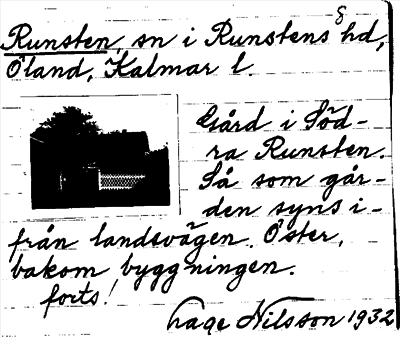 Runsten, sn i Runstens hd,
Öland, Kalmar l.
Gård i Söd-
ra Runsten.
Så som går-
den syns i-
från landsvägen. Öster,
bakom byggningen.
forts!
Lage Nilsson 1932